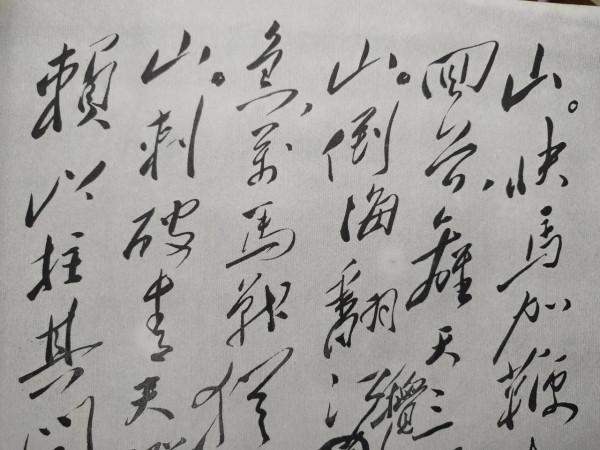 山。快馬加鞭
回首、離天三
山。倒海翻江
急、萬馬戰猶
山。刺破青天
賴以拄其